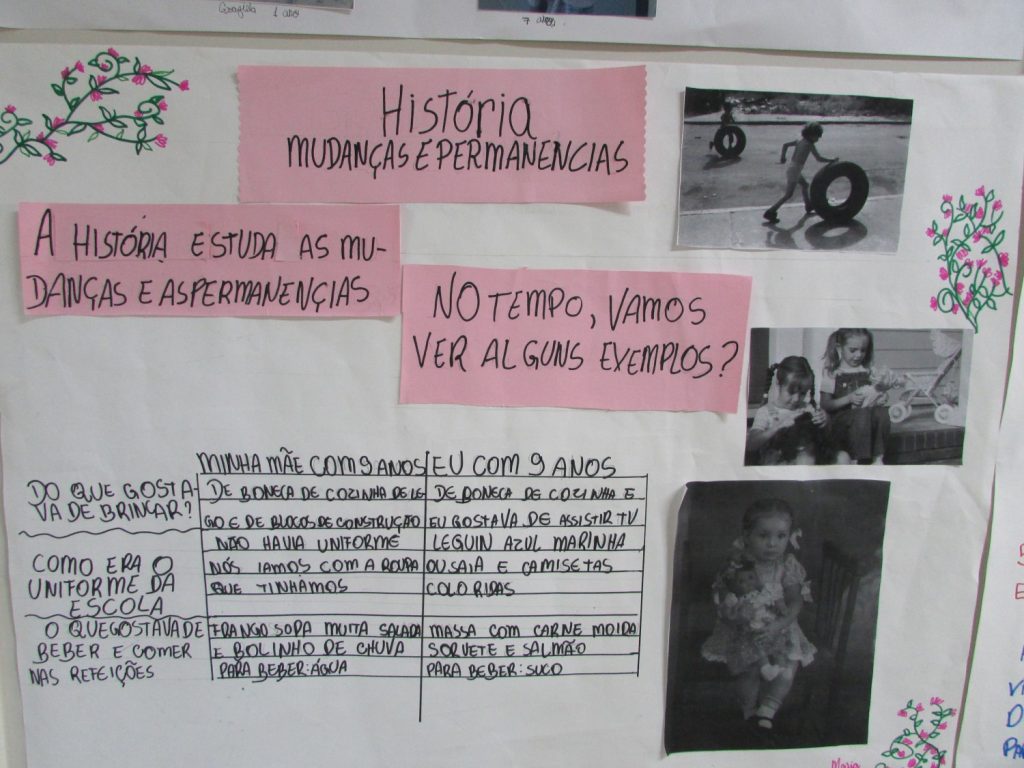 1 ano
7 anos
História
MUDANÇAS E PERMANENCIAS
A HISTÓRIA ESTUDA AS MU-
DANÇAS E AS PERMANENÇIAS
NO TEMPO, VAMOS
VER ALGUNS EXEMPLOS?
MINHA MÃE COM 9 ANOS EU COM 9 ANOS
DO QUE GOSTA-
VA DE BRINCAR?
DE BONECA DE COZINHA DE LE
GO E DE BLOCOS DE CONSTRUÇÃO
DE BONECA DE COZINHA E
EU GOSTAVA DE ASSISTIR TV
COMO ERA O
UNIFORME DA
ESCOLA
NÃO HAVIA UNIFORME
NÓS IAMOS COM A ROUPA
QUE TINHAMOS
LEGUIN AZUL MARINHA
OU SAIA E CAMISETAS
COLORIDAS
O QUE GOSTAVA DE
BEBER E COMER
NAS REFEIÇÕES
FRANGO SOPA MUITA SALADA
E BOLINHO DE CHUVA
PARA BEBER: ÁGUA
MASSA COM CARNE MOIDA
SORVETE E SALMÃO
PARA BEBER: SUCO
Maria